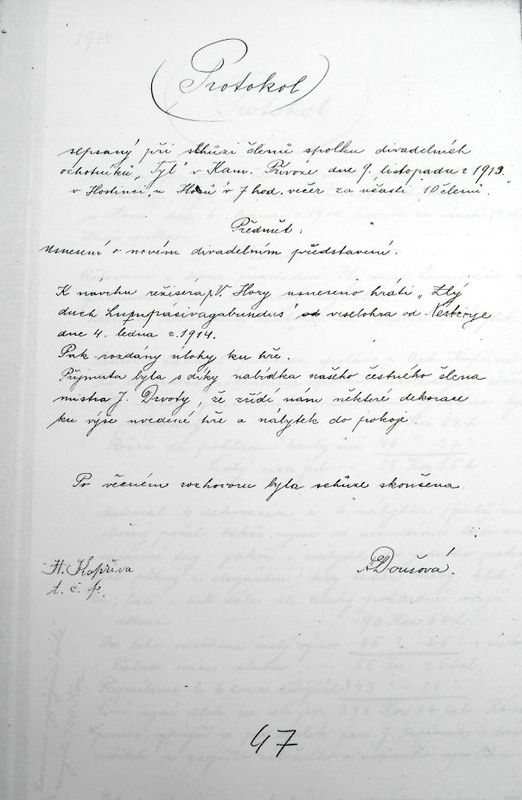 Protokol
sepsaný při schůzi členů spolku divadelních
ochotníků „Tyl“ v Kam. Přívoze dne 9. listopadu r 1913.
v Hostinci u Horů v 7 hod. večer za účasti 10 členů.
Předmět:
Usnesení o novém divadelním představení.
K návrhu režiséra p. V. Hory usneseno hráti „Zlý
duch Lupufrasivagabundus“ od veselohra od Nestroye
dne 4. ledna r. 1914.
Pak rozdány úlohy ku hře.
Přijmuta byla s díky nabídka našeho čestného člena
mistra J. Drvoty, že zřídí nám některé dekorace
ku výše uvedené hře a nábytek do pokoje.
Po věcném rozhovoru byla schůze skončena.
A Doušová.
H. Kopřiva
t. č. př.
47